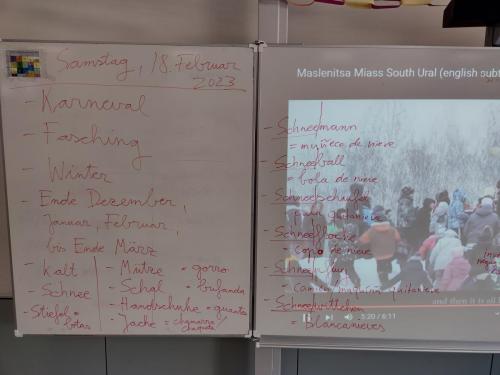 Samstag, 18. Februar
2023
- Karneval
- Fasching
- Winter
- Ende Dezember,
Januar, Februar,
bis Ende März
- Kalt
- Schnee
- Stiefel =
botas
- Mütze = gorro
- Schal = bufanda
- Handschuhe = guantes
- Jacke = chamarra/
chaqueta
Maslenitsa Miass South Ural (english subt
- Schneemann
= muñeco de nieve
- Schneeball
= bola de nieve
- Schneeschaufel
- Schneeflocke
= copo de nieve
quitanieve
- Schneewittchen
= blancanieves
and then it is all
5:20 / 6:11